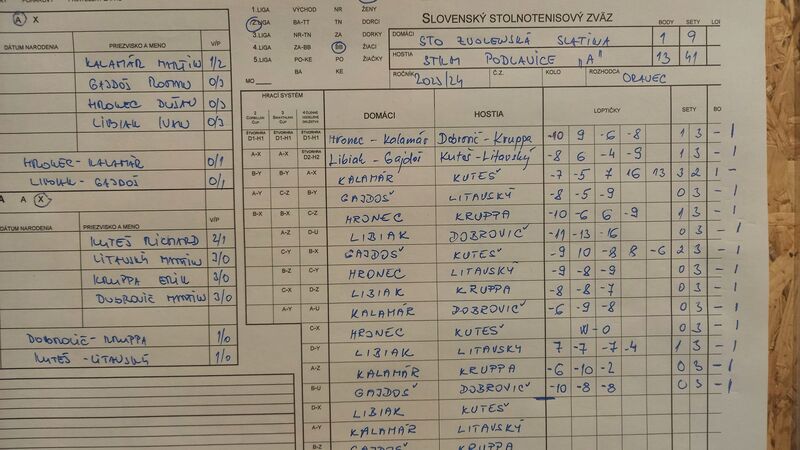 1.LIGA VÝCHOD NR ŽENY
2.LIGA BA-TT TN DORCI
3.LIGA NR-TN ZA DORKY
4.LIGA ZA-BB BB ŽIACI
5.LIGA PO-KE PO ŽIAČKY
BA KE
MO
SLOVENSKÝ STOLNOTENISOVÝ ZVÄZ
BODY SETY
DOMÁCI STO ZVOLENSKÁ SLATINA 1 9
HOSTIA STKM PODLAVICE "A" 13 41
ROČNÍK 2023/24 Č.Z. KOLO ROZHODCA ORAVEC
A X
DÁTUM NARODENIA PRIEZVISKO A MENO V/P
KALAMÁR MARTIN 1/2
GAJDOŠ ROMAN 0/3
HRONEC DUŠAN 0/3
LIBIAK IVAN 0/3
HRONEC-KALAMÁR 0/1
LIBIAK-GAJDOŠ 0/1
A A X
DÁTUM NARODENIA PRIEZVISKO A MENO V/P
KUTEŠ RICHARD 2/1
LITAVSKÝ MARTIN 3/0
KRUPPA ERIK 3/0
DOBROVIČ MARTIN 3/0
DOBROVIČ-KRUPPA 1/0
KUTEŠ-LITAVSKÝ 1/0
HRACÍ SYSTÉM DOMÁCI HOSTIA LOPTIČKY SETY
ŠTVORHRA D1-H1 ŠTVORHRA D1-H1 ŠTVORHRA D1-H1 Hronec - Kalamár Dobrovič - Kruppa -10 9 -6 -8 1 3 - 1
A-X A-X ŠTVORHRA D2-H2 Libiak - Gajdoš Kuteš - Litavský -8 6 -4 -9 1 3 - 1
B-Y B-Y A-X KALAMÁR KUTEŠ -7 -5 7 16 13 3 2 1 -
A-Y C-Z B-Y GAJDOŠ LITAVSKÝ -8 -5 -9 0 3 - 1
B-X B-X C-Z HRONEC KRUPPA -10 -6 6 -9 1 3 - 1
A-Z D-U LIBIAK DOBROVIČ -11 -13 -16 0 3 - 1
C-Y B-X GAJDOŠ KUTEŠ -9 10 -8 8 -6 2 3 - 1
B-Z C-Y HRONEC LITAVSKÝ -9 -8 -9 0 3 - 1
C-X D-Z LIBIAK KRUPPA -8 -8 -7 0 3 - 1
A-Y A-U KALAMÁR DOBROVIČ -6 -9 -8 0 3 - 1
C-X HRONEC KUTEŠ W-O 0 3 - 1
D-Y LIBIAK LITAVSKÝ 7 -7 -7 -4 1 3 - 1
A-Z KALAMÁR KRUPPA -6 -10 -2 0 3 - 1
B-U GAJDOŠ DOBROVIČ -10 -8 -8 0 3 - 1
D-X LIBIAK KUTEŠ
A-Y KALAMÁR LITAVSKÝ
B-Z GAJDOŠ KRUPPA